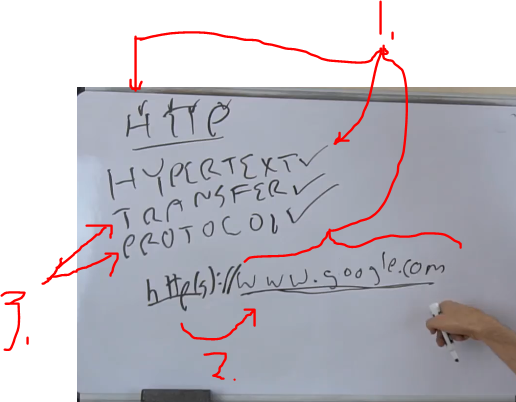 1.
HTTP
HYPERTEXT
TRANSFER
PROTOCOL
http(s)://www.google.com
3.
2.